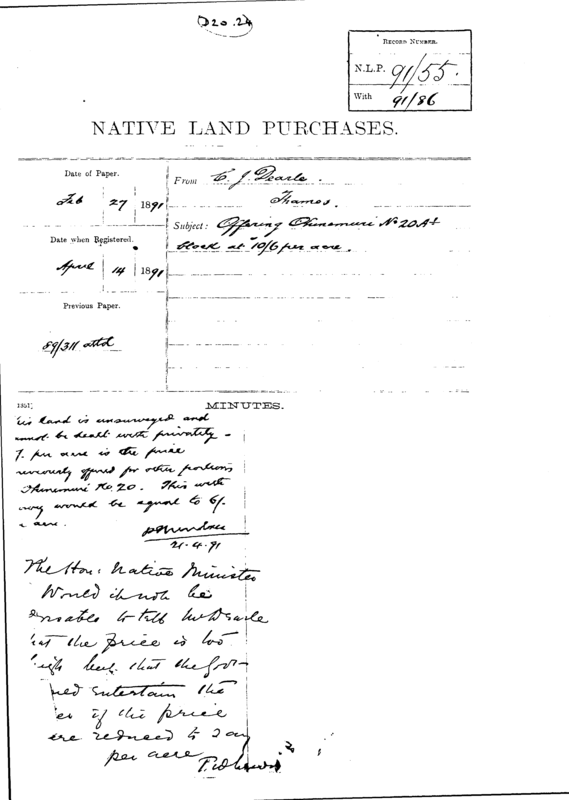 D20.24
RECORD NUMBER.
N.L.P. 91/55.
With 91/86
NATIVE LAND PURCHASES.
Date of Paper.
Feb 27 1891
From C. J. Dearle.
Thames.
Subject: Offering Ohinemuri No 20A
block at 10/6 per acre.
Date when Registered.
April 14 1891
Previous Paper.
89/311 attd
1351]
MINUTES.
his land is unsurveyed and
nnot be dealt with privately -
per acre is the price
reviously offered for other portions
Ohinemuri No. 20. This with
vey would be equal to 6/-
acre.
21.4.91
The Hon: Native Minister
Would it not be
to tell Mr Dearle
hat the price is too
high but that the Gov-
entertain the
er if the price
ere reduced to say
per acre
T.W. Lewis